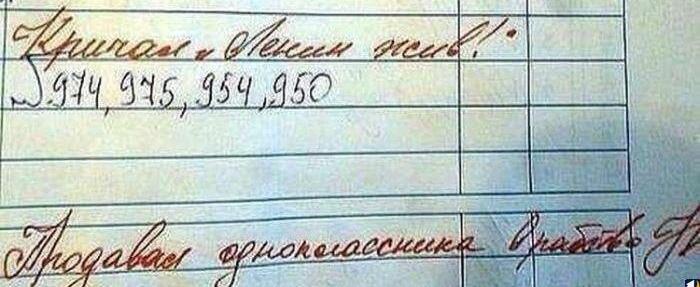 Кричал „Ленин жив!"
№ 974, 975, 954, 950
Продавал одноклассника в рабство